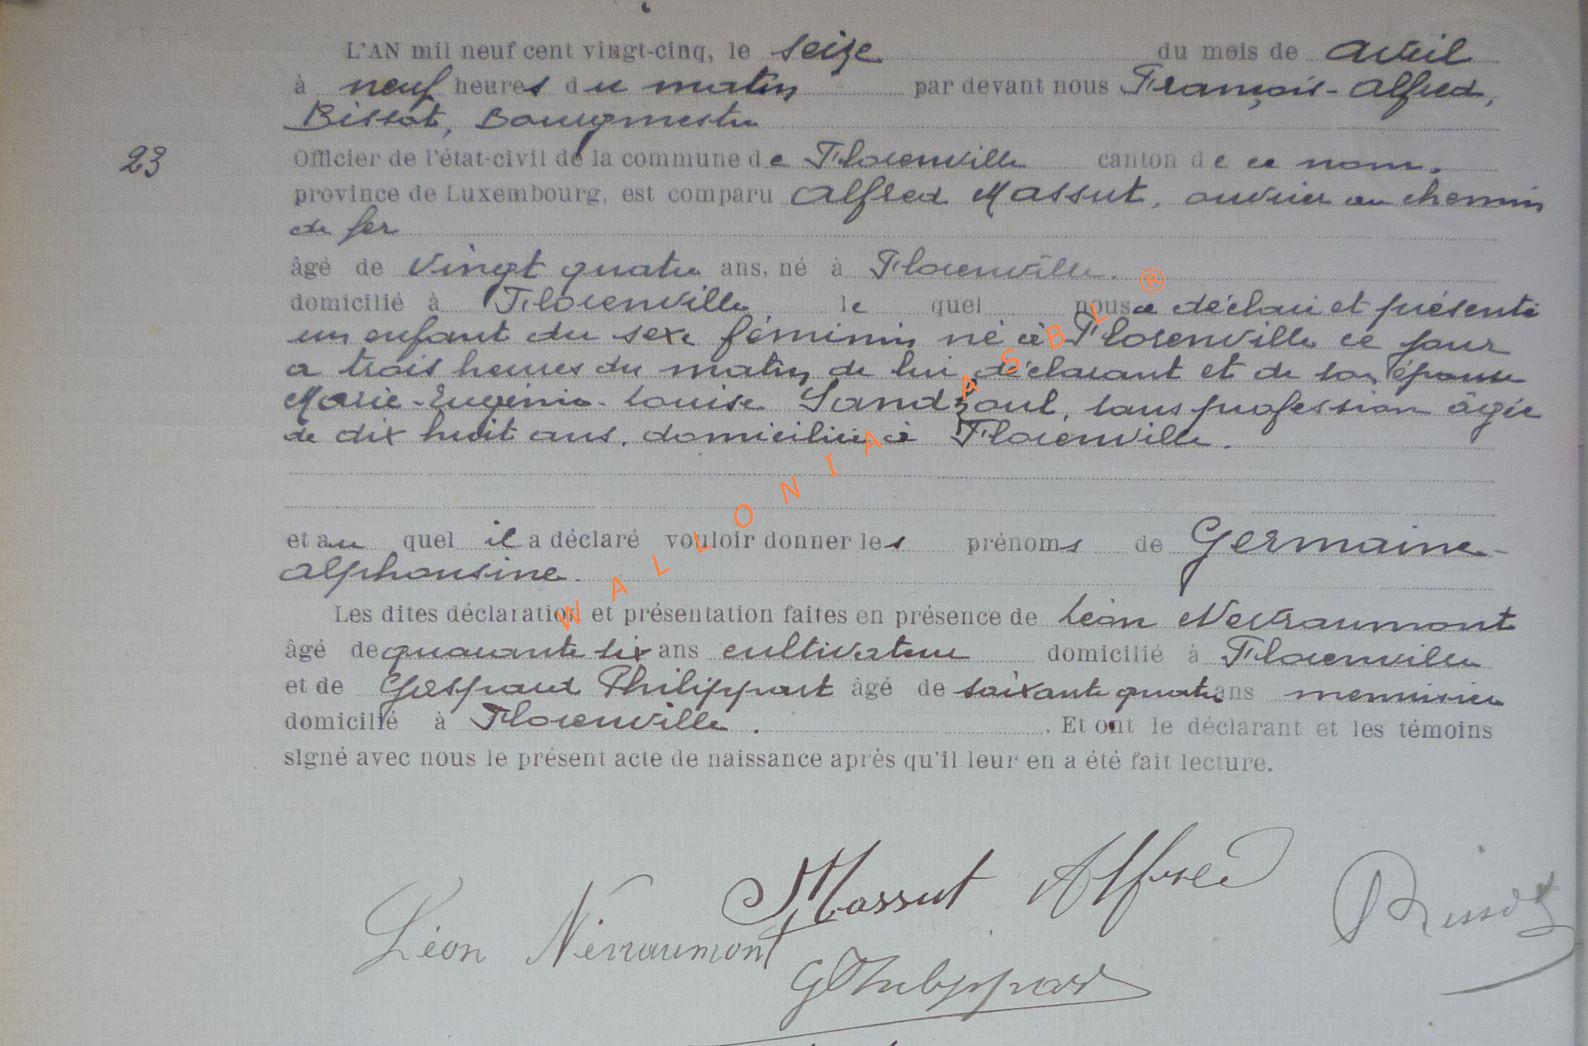 L'AN mil neuf cent vingt-cinq, le seize du mois de avril
à neuf heures du matin par devant nous François-Alfred,
Bissot, Bourgmestre
23 Officier de l'état-civil de la commune de Florenville canton de ce nom.
province de Luxembourg, est comparu Alfred Massut, ouvrier au chemin
de fer
âgé de vingt quatre ans, né à Florenville.
domicilié à Florenville le quel nous a déclaré et présenté
un enfant du sexe féminin né à Florenville ce jour
a trois heures du matin de lui déclarant et de son épouse
Marie-Eugénie-Louise Sandzoul, sans profession âgée
de dix huit ans, domiciliée à Florenville.
et au quel il a déclaré vouloir donner les prénoms de Germaine-
Alphonsine.
Les dites déclaration et présentation faites en présence de Léon Nevraumont
âgé de quarante six ans cultivateur domicilié à Florenville
et de Gaspard Philippart âgé de soixante quatre ans menuisier
domicilié à Florenville. . Et ont le déclarant et les témoins
signé avec nous le présent acte de naissance après qu'il leur en a été fait lecture.
WALLONIA ASBL ®
Massut Alfred
Léon Névraumont
G Philippart
Bissot